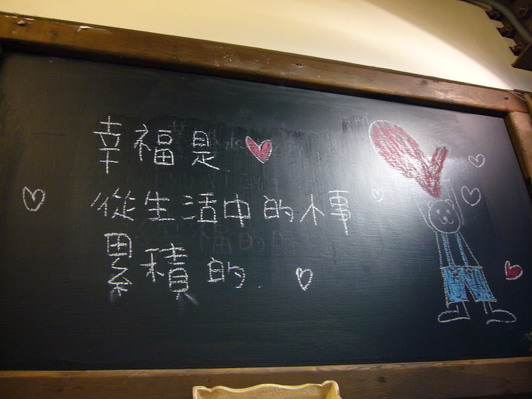 幸福是
從生活中的小事
累積的.